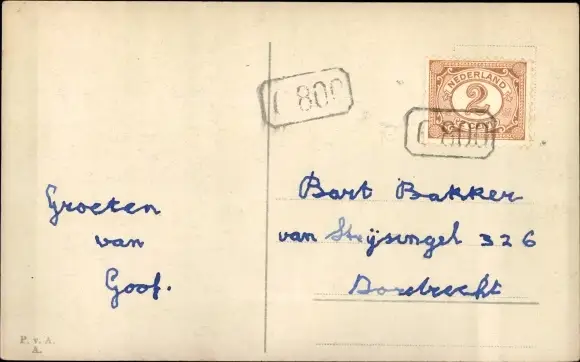 C 800
NEDERLAND
2
C 800
Groeten
van
Goof.
Bart Bakker
van Strijsingel 326
Dordrecht
P. v. A.
A.